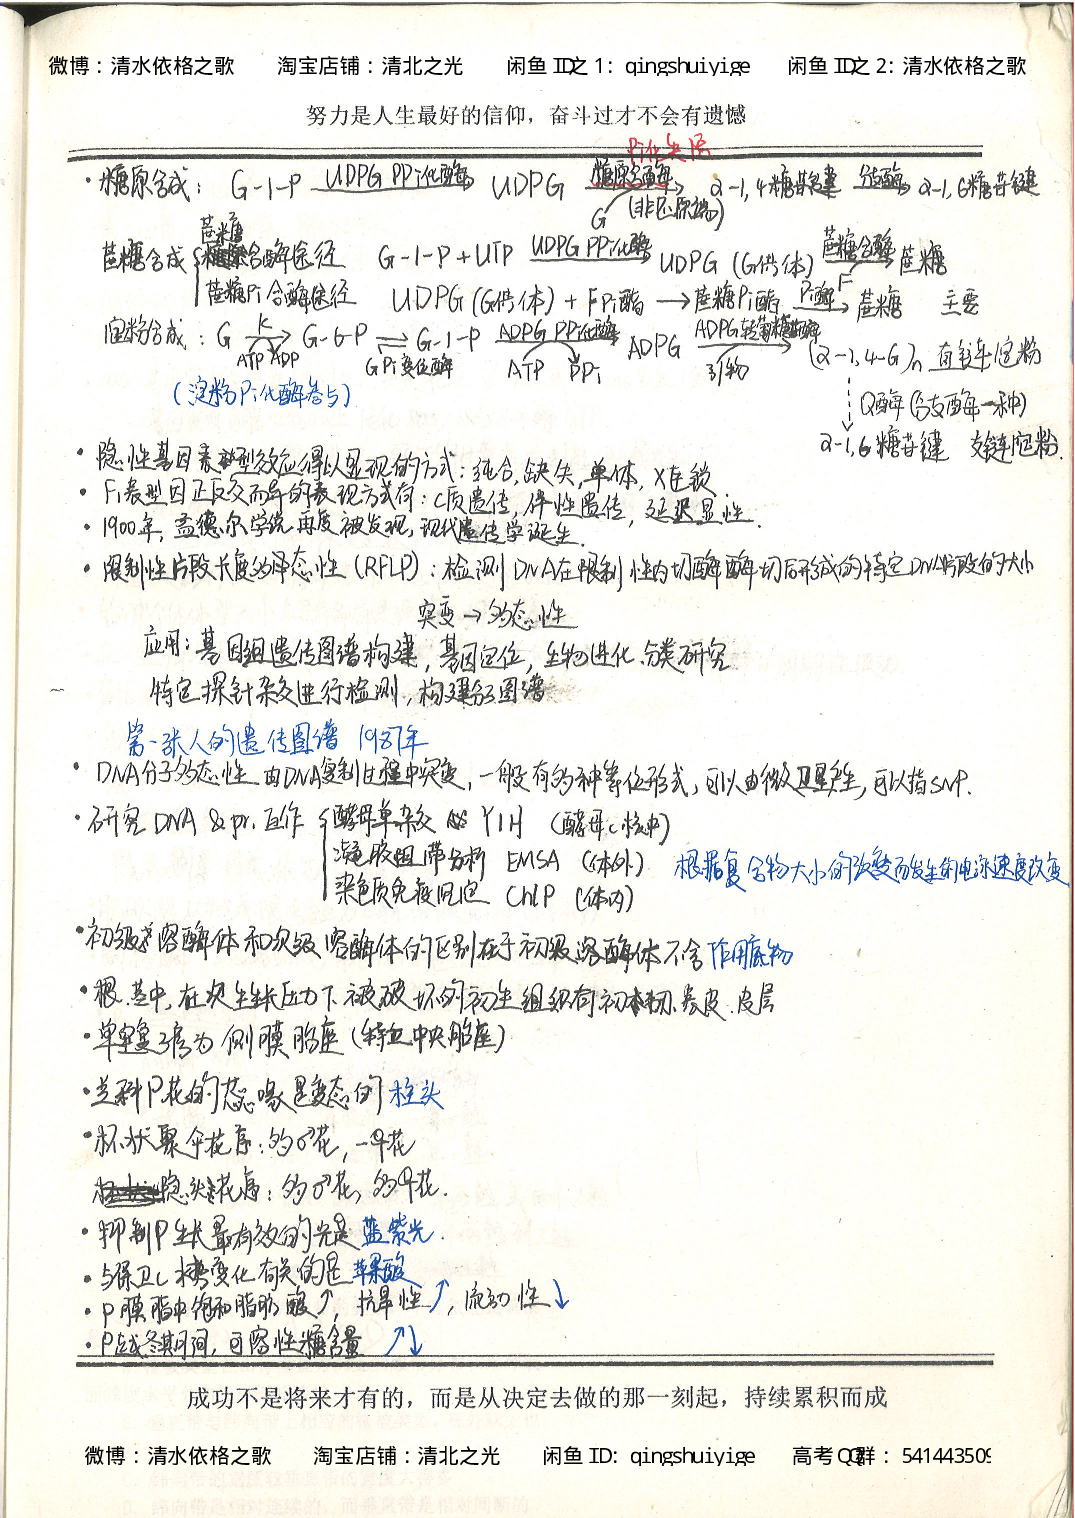 微博：清水依格之歌 淘宝店铺：清北之光 闲鱼 ID之 1: qingshuiyige 闲鱼 ID之 2: 清水依格之歌
努力是人生最好的信仰，奋斗过才不会有遗憾
Pi化失活
·糖原合成：G-1-P UDPG PPi化酶 UDPG 糖原合酶 G (非还原端) α-1,4糖苷键 分支酶 α-1,6糖苷键
蔗糖合成 蔗糖合酶途径 G-1-P+UTP UDPG PPi化酶 UDPG (G供体) 蔗糖合酶 F 蔗糖
蔗糖Pi合酶途径 UDPG (G供体) + FPi酯 → 蔗糖Pi酯 Pi酶 蔗糖 主要
淀粉合成：G K ATP ADP G-6-P ⇌ GPi变位酶 G-1-P ADPG PPi化酶 ATP PPi ADPG ADPG转葡糖苷酶 引物 (α-1,4-G)n 直链淀粉
(淀粉Pi化酶参与)
Q酶 (分支酶一种)
α-1,6糖苷键 支链淀粉.
·隐性基因表型效应得以显现的方式：纯合,缺失,单体,X连锁
·F₁表型因正反交而异的表现方式有：C质遗传，伴性遗传，延迟显性.
·1900年，孟德尔学说再度被发现，现代遗传学诞生.
·限制性片段长度多态性 (RFLP)：检测DNA在限制性内切酶酶切后形成的特定DNA片段的大小
突变→多态性
应用：基因组遗传图谱构建，基因定位，生物进化.分类研究
特定探针杂交进行检测，构建分子图谱
第一张人的遗传图谱 1987年
·DNA分子多态性由DNA复制过程中突变，一般有多种等位形式，可以由微卫星产生，可以指SNP.
·研究DNA & pr.互作 酵母单杂交 Y1H (酵母c核中)
凝胶阻滞分析 EMSA (体外) 根据复合物大小的改变而发生的电泳速度改变
染色质免疫沉淀 ChIP (体内)
·初级溶酶体和次级溶酶体的区别在于初级溶酶体不含作用底物
·根.茎中，在次生生长压力下被破坏的初生组织有初韧.表皮.皮层
·单室复子房为侧膜胎座 (特立中央胎座)
·兰科P花的蕊喙是变态的柱头
·杯状聚伞花序：多♂花，一♀花
隐头花序：多♂花，多♀花.
·抑制P生长最有效的光是蓝紫光.
·与保卫c 变化有关的是苹果酸
·P膜脂中饱和脂肪酸↑，抗旱性↑，流动性↓
·P越冬期间，可溶性糖含量 ↑↓
成功不是将来才有的，而是从决定去做的那一刻起，持续累积而成
微博：清水依格之歌 淘宝店铺：清北之光 闲鱼 ID: qingshuiyige 高考 QQ群： 541443509